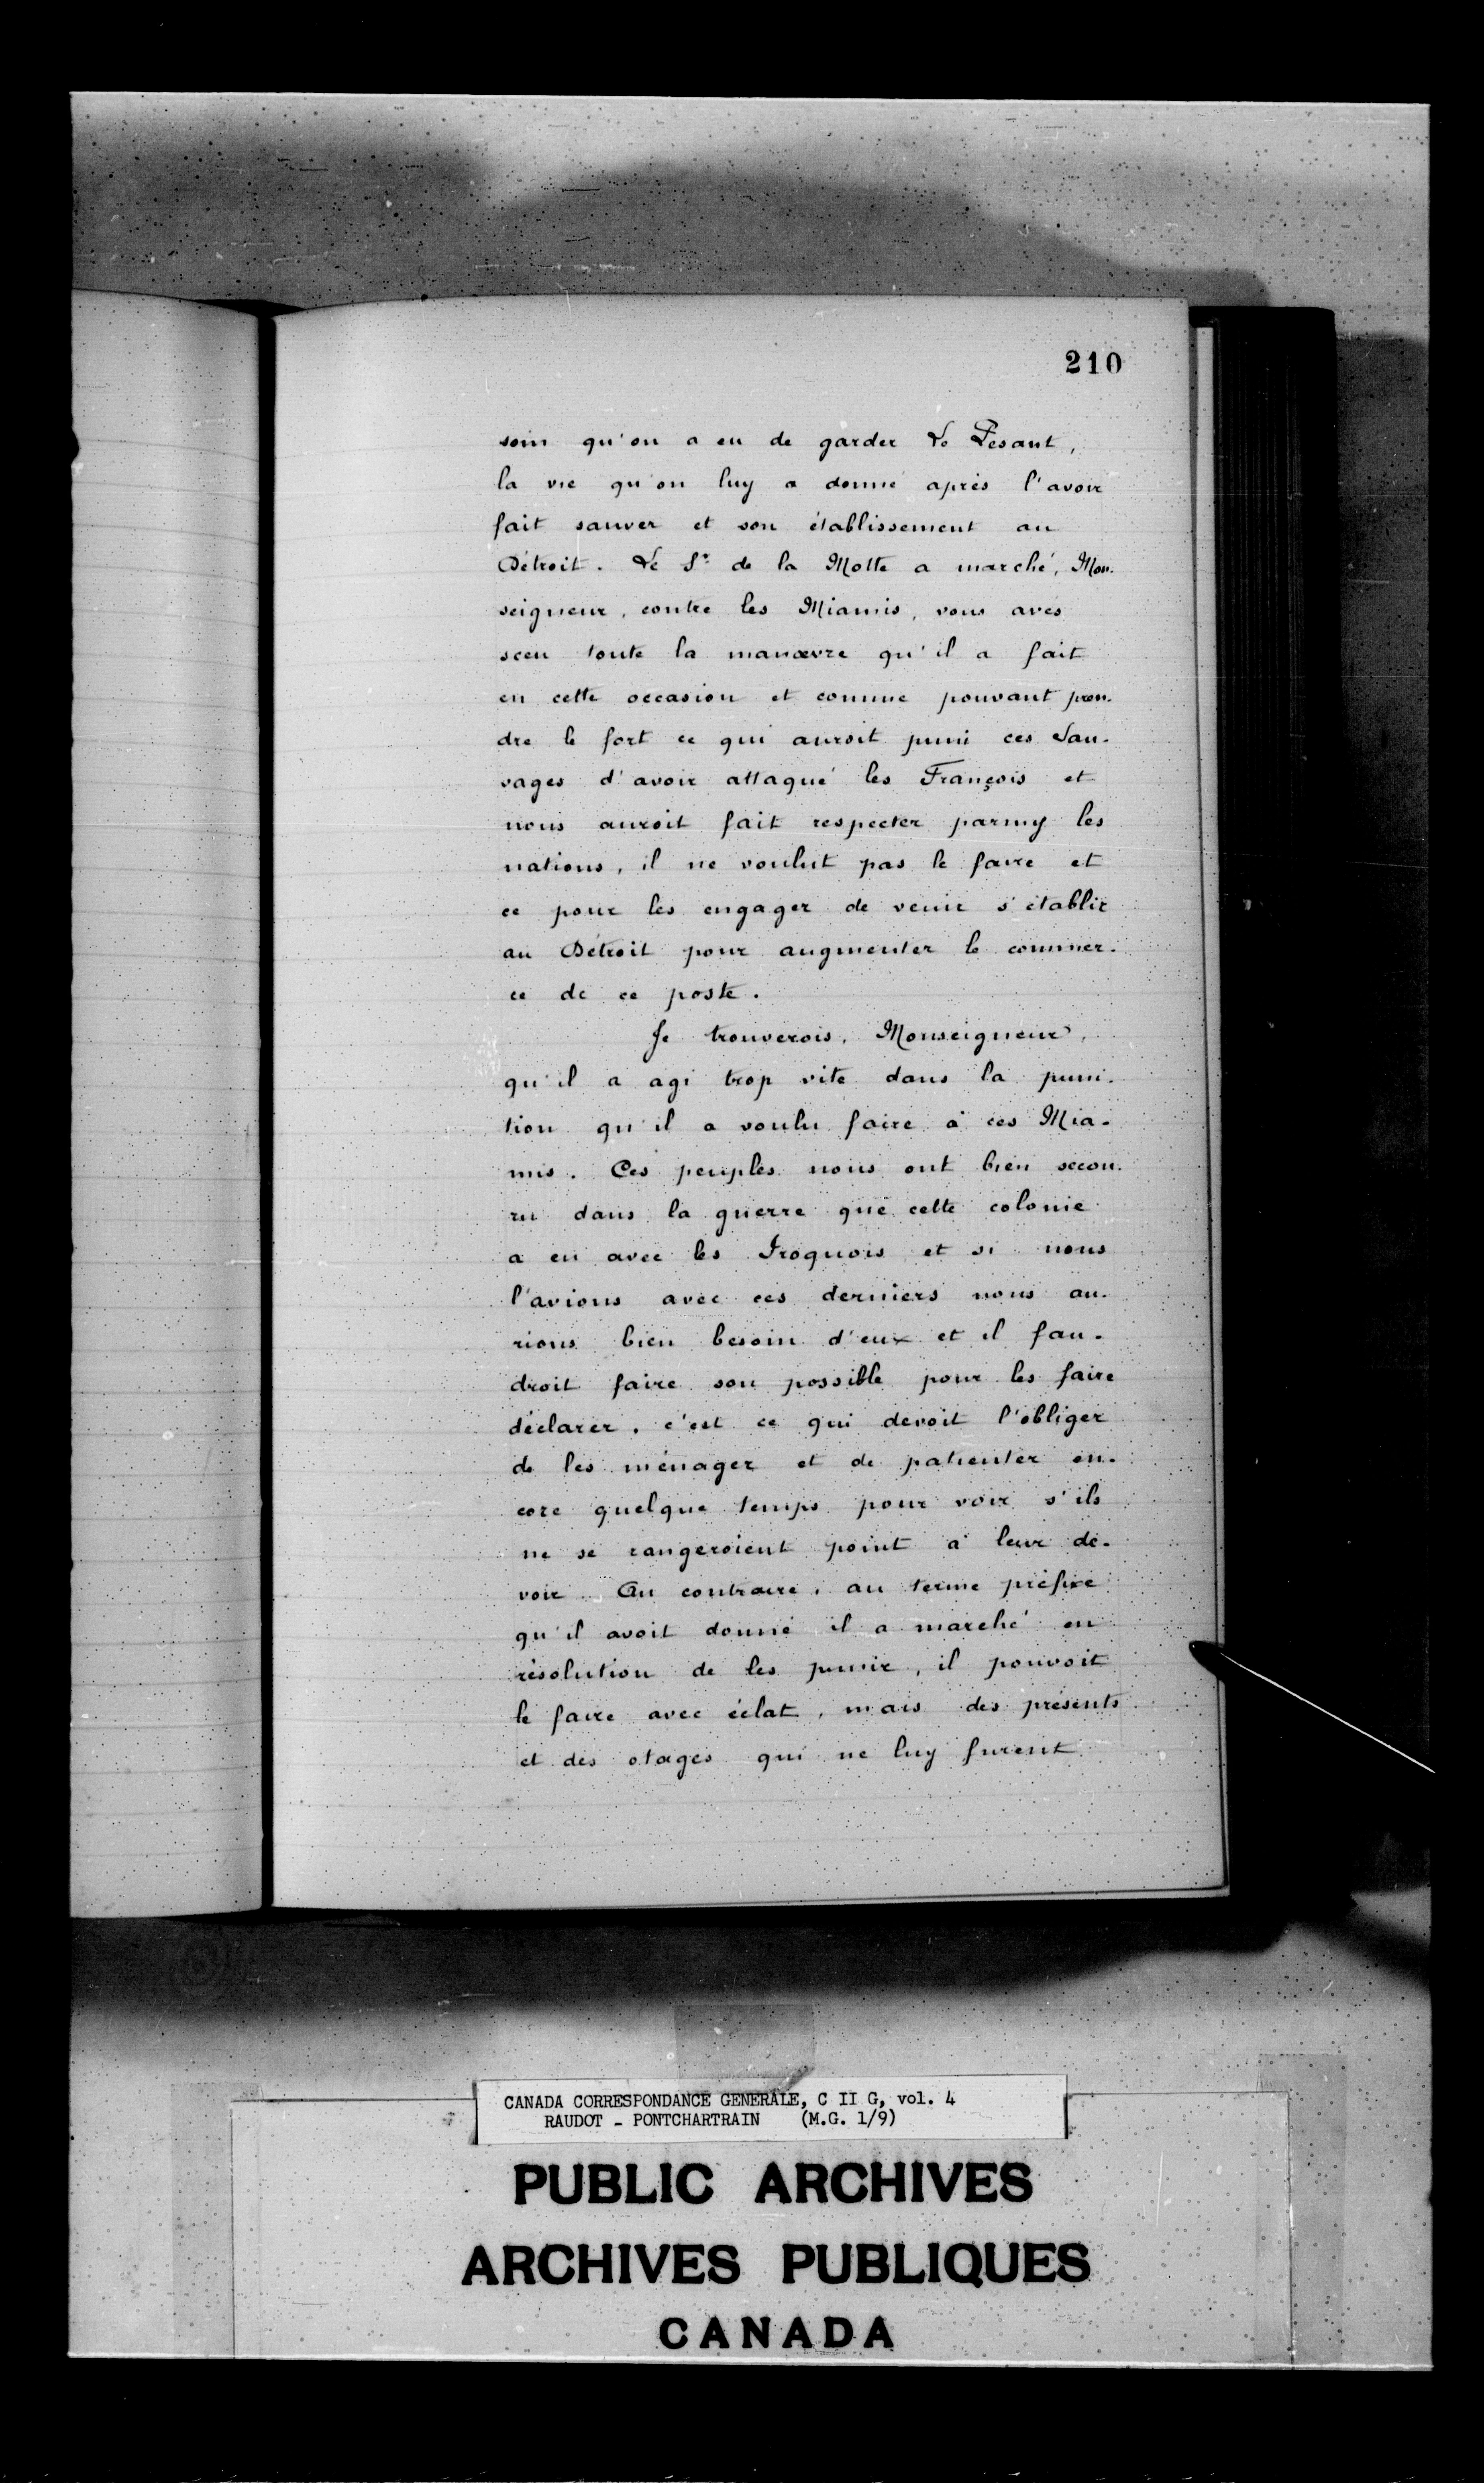 210
soin qu'on a eu de garder Le Pesant,
la vie qu'on luy a donné après l'avoir
fait sauver et son établissement au
Détroit. Le Sr de la Motte a marché, Mon-
seigneur, contre les Miamis, vous avés
sceu toute la manœvre qu'il a fait
en cette occasion et comme pouvant pren-
dre le fort ce qui auroit puni ces Sau-
vages d'avoir attaqué les François et
nous auroit fait respecter parmy les
nations, il ne voulut pas le faire et
ce pour les engager de venir s'établir
au Détroit pour augmenter le commer-
ce de ce poste.
Je trouverois, Monseigneur,
qu'il a agi trop vite dans la puni-
tion qu'il a voulu faire à ces Mia-
mis. Ces peuples nous ont bien secou-
ru dans la guerre que cette colonie
a eu avec les Iroquois et si nous
l'avions avec ces derniers nous au-
rions bien besoin d'eux et il fau-
droit faire son possible pour les faire
déclarer, c'est ce qui devoit l'obliger
de les ménager et de patienter en-
core quelque temps pour voir s'ils
ne se rangeroient point à leur de-
voir. Au contraire, au terme préfixe
qu'il avoit donné il a marché en
résolution de les punir, il pouvoit
le faire avec éclat, mais des présents
et des otages qui ne luy furent
CANADA CORRESPONDANCE GENERALE, C II G, vol. 4
RAUDOT - PONTCHARTRAIN (M.G. 1/9)
PUBLIC ARCHIVES
ARCHIVES PUBLIQUES
CANADA